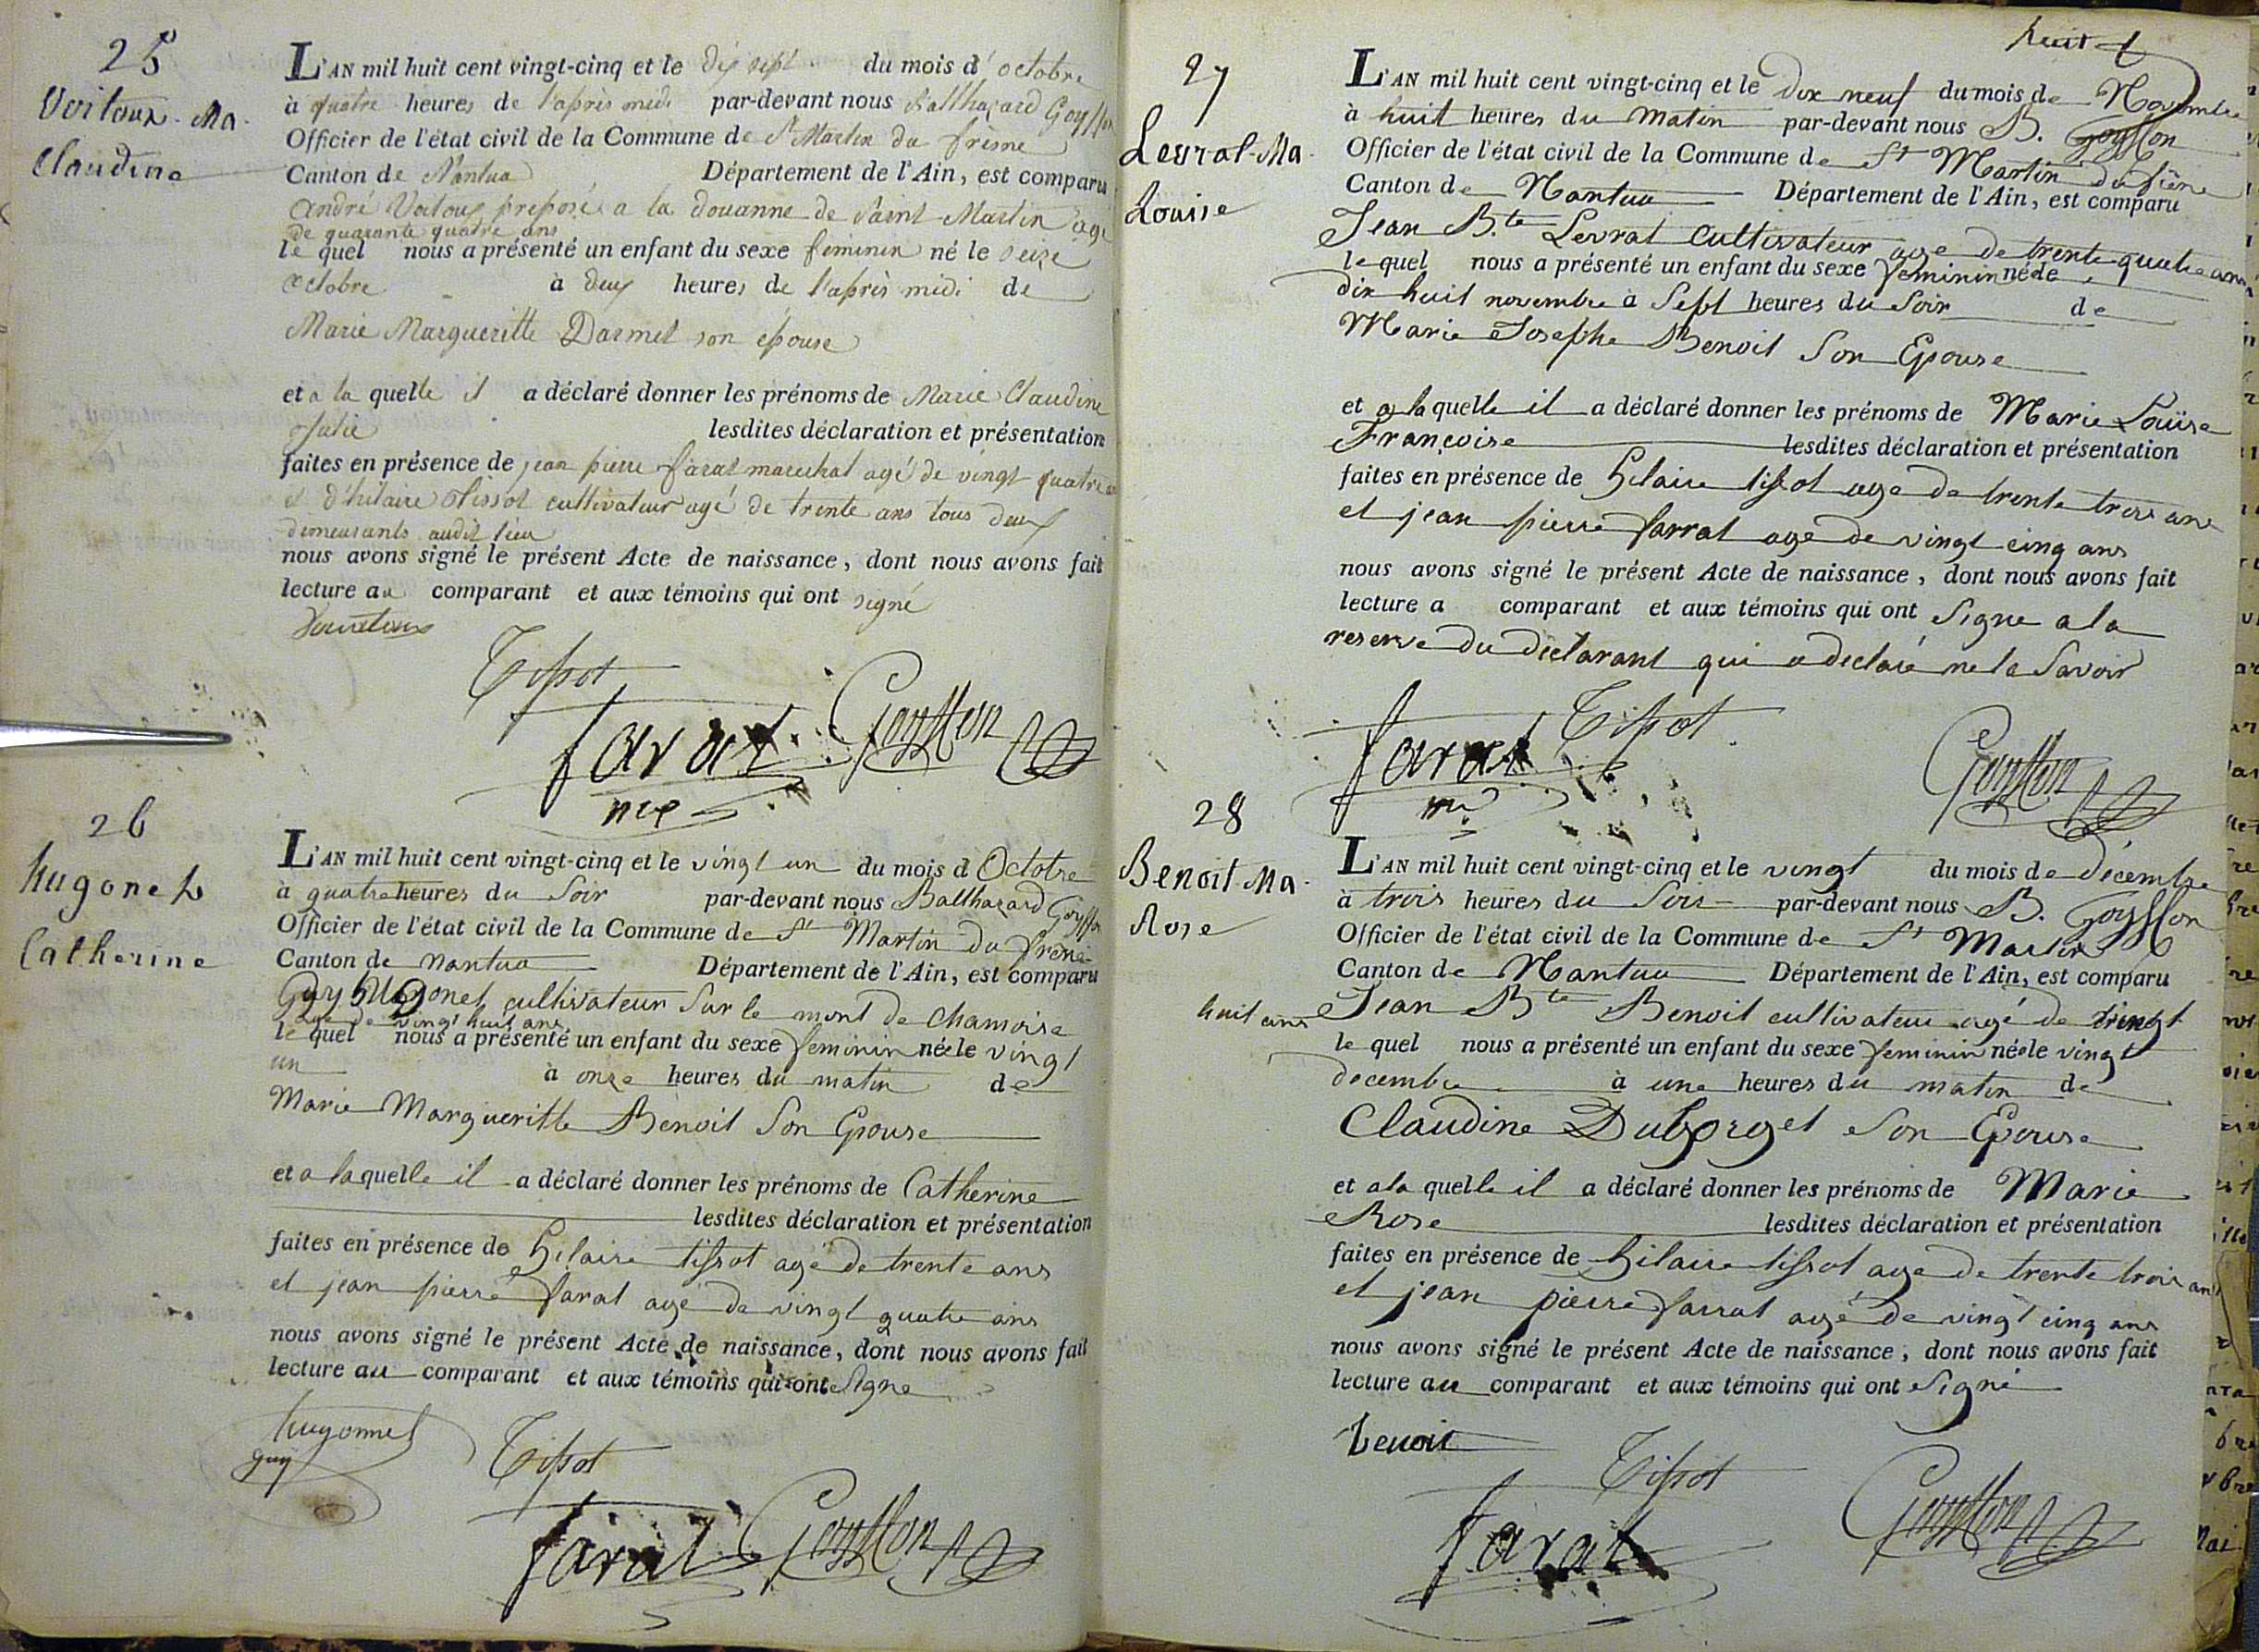 25
Voitoux Ma.
Claudine
L'AN mil huit cent vingt-cinq et le dix sept du mois d'octobre
à quatre heures de l'après midi par-devant nous Balthazard Goyffon
Officier de l'état civil de la Commune de St Martin du frêne
Canton de Nantua Département de l'Ain, est comparu
André Voitoux préposé a la douanne de Saint Martin agé
de quarante quatre ans
le quel nous a présenté un enfant du sexe feminin né le seize
octobre à deux heures de l'après midi de
Marie Margueritte Darmet son épouse
et a la quelle il a déclaré donner les prénoms de Marie Claudine
Julie lesdites déclaration et présentation
faites en présence de jean pierre farat marechal agé de vingt quatre ans
et d'hilaire tissot cultivateur agé de trente ans tous deux
demeurants audit lieu
nous avons signé le présent Acte de naissance, dont nous avons fait
lecture au comparant et aux témoins qui ont signé
Tissot
farat
Goyffon
26
hugonet
Catherine
L'AN mil huit cent vingt-cinq et le vingt un du mois d Octobre
à quatre heures du Soir par-devant nous Balthazard Goyffon
Officier de l'état civil de la Commune de St Martin du frene
Canton de nantua Département de l'Ain, est comparu
Guy hugonet cultivateur Sur le mont de chamoise
age de vingt huit ans
le quel nous a présenté un enfant du sexe feminin née le vingt
un à onze heures du matin de
Marie Margueritte Benoit Son Epouse
et a laquelle il a déclaré donner les prénoms de Catherine
lesdites déclaration et présentation
faites en présence de hilaire tissot agé de trente ans
et jean pierre farat agé de vingt quatre ans
nous avons signé le présent Acte de naissance, dont nous avons fait
lecture au comparant et aux témoins qui ont Signe
hugonnet
guy
Tissot
farat
Goyffon
huit
27
Levrat Ma.
Louise
L'AN mil huit cent vingt-cinq et le Dix neuf du mois de Novembre
à huit heures du matin par-devant nous B. Goyffon
Officier de l'état civil de la Commune de St Martin du frene
Canton de Nantua Département de l'Ain, est comparu
Jean Bte Levrat Cultivateur age de trente quatre ans
le quel nous a présenté un enfant du sexe feminin née le
dix huit novembre à Sept heures du Soir de
Marie Josephe Benoit Son Epouse
et a la quelle il a déclaré donner les prénoms de Marie Louise
Françoise lesdites déclaration et présentation
faites en présence de hilaire tissot age de trente trois ans
et jean pierre farrat age de vingt cinq ans
nous avons signé le présent Acte de naissance, dont nous avons fait
lecture a comparant et aux témoins qui ont Signe a la
reserve du declarant qui a declaré ne le Savoir
farat
Tissot
Goyffon
28
Benoit Ma.
Rose
L'AN mil huit cent vingt-cinq et le vingt du mois de décembre
à trois heures du Soir par-devant nous B. Goyffon
Officier de l'état civil de la Commune de St Martin
Canton de Nantua Département de l'Ain, est comparu
Jean Bte Benoit cultivateur agé de vingt
huit ans
le quel nous a présenté un enfant du sexe feminin née le vingt
decembre à une heures du matin de
Claudine Duborget Son Epouse
et a la quelle il a déclaré donner les prénoms de Marie
Rose lesdites déclaration et présentation
faites en présence de hilaire tissot age de trente trois ans
et jean pierre farrat agé de vingt cinq ans
nous avons signé le présent Acte de naissance, dont nous avons fait
lecture au comparant et aux témoins qui ont Signé
benoit
Tissot
farat
Goyffon